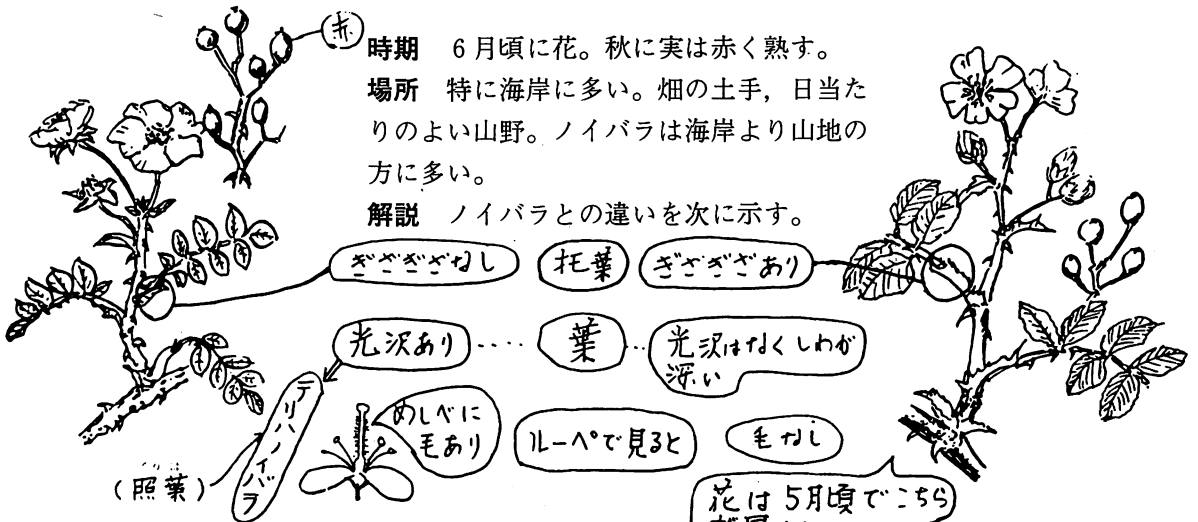 赤
時期　６月頃に花。秋に実は赤く熟す。
場所　特に海岸に多い。畑の土手，日当た
りのよい山野。ノイバラは海岸より山地の
方に多い。
解説　ノイバラとの違いを次に示す。
ぎざぎざなし
托葉
ぎざぎざあり
光沢あり
葉
光沢はなくしわが
深い
テリハノイバラ
（照葉）
めしべに
毛あり
ルーペで見ると
毛なし
花は５月頃でこちら